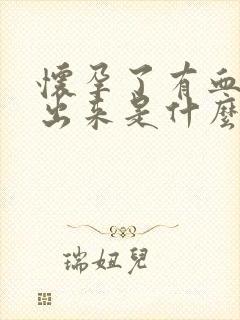 懷孕了有血
出来是什麼
瑞妞兒